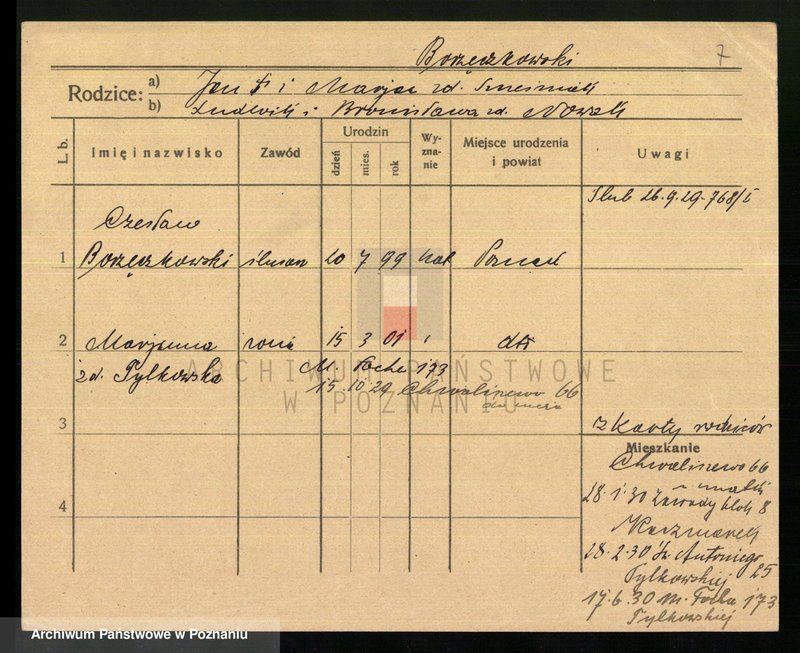 Borzęczkowski 7
Rodzice: a) Jan † i Marja zd.
b) Ludwik i Bronisława zd. Nowak
L. b. Imię i nazwisko Zawód Urodzin dzień mies. rok Wy-zna-nie Miejsce urodzenia i powiat Uwagi
Ślub 26.9.29-768/I
Czesław
1 Borzęczkowski ślusarz 20 7 99 kat Poznań
2 Marjanna żona 15 3 01 dto
zd. Tylkowska M. Focha 173
15.10.29 Chwaliszewo 66
ARCHIWUM PAŃSTWOWE
W POZNANIU
3 z karty rodziców
Mieszkanie
Chwaliszewo 66
u matki
28.1.30 Zawady blok 8
4 Kaczmarek
28.2.30 Św. Antoniego 25
Tylkowskiej
17.6.30 M. Focha 173
Tylkowskiej
Archiwum Państwowe w Poznaniu